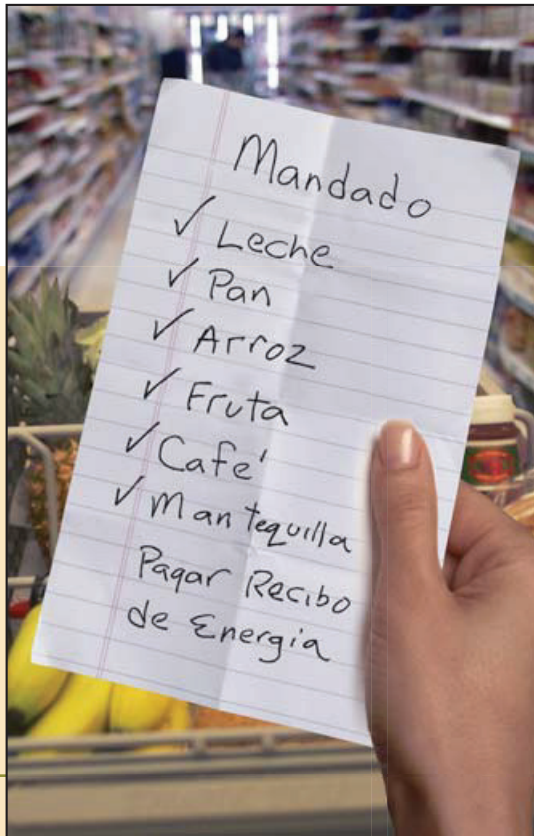 Mandado
✓ Leche
✓ Pan
✓ Arroz
✓ Fruta
✓ Café
✓ Mantequilla
Pagar Recibo
de Energia